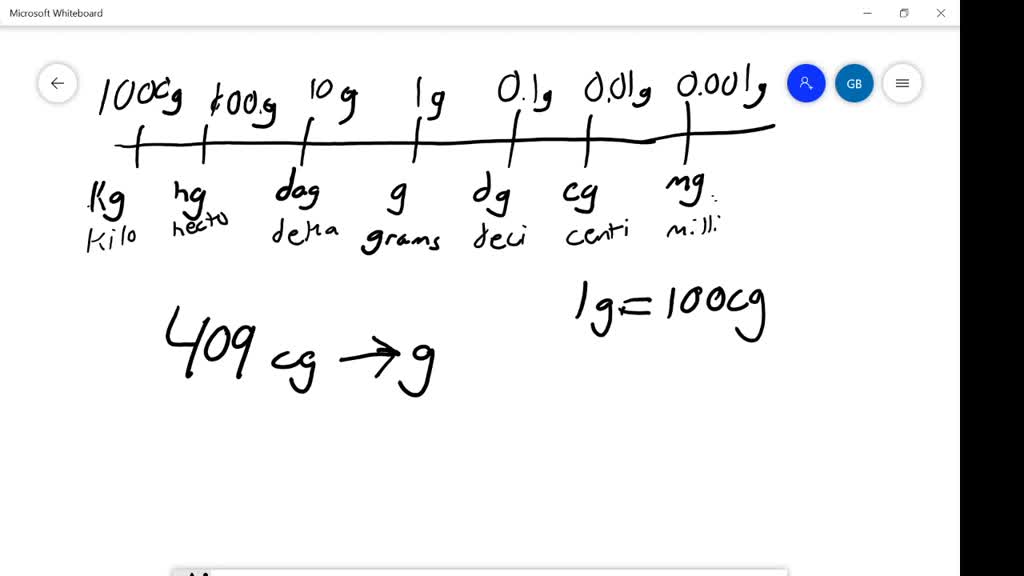 Microsoft Whiteboard
GB
1000g 100g 10g 1g 0.1g 0.01g 0.001g
Kg hg dag g dg cg mg
Kilo hecto deka grams deci centi milli
1g = 100cg
409 cg → g